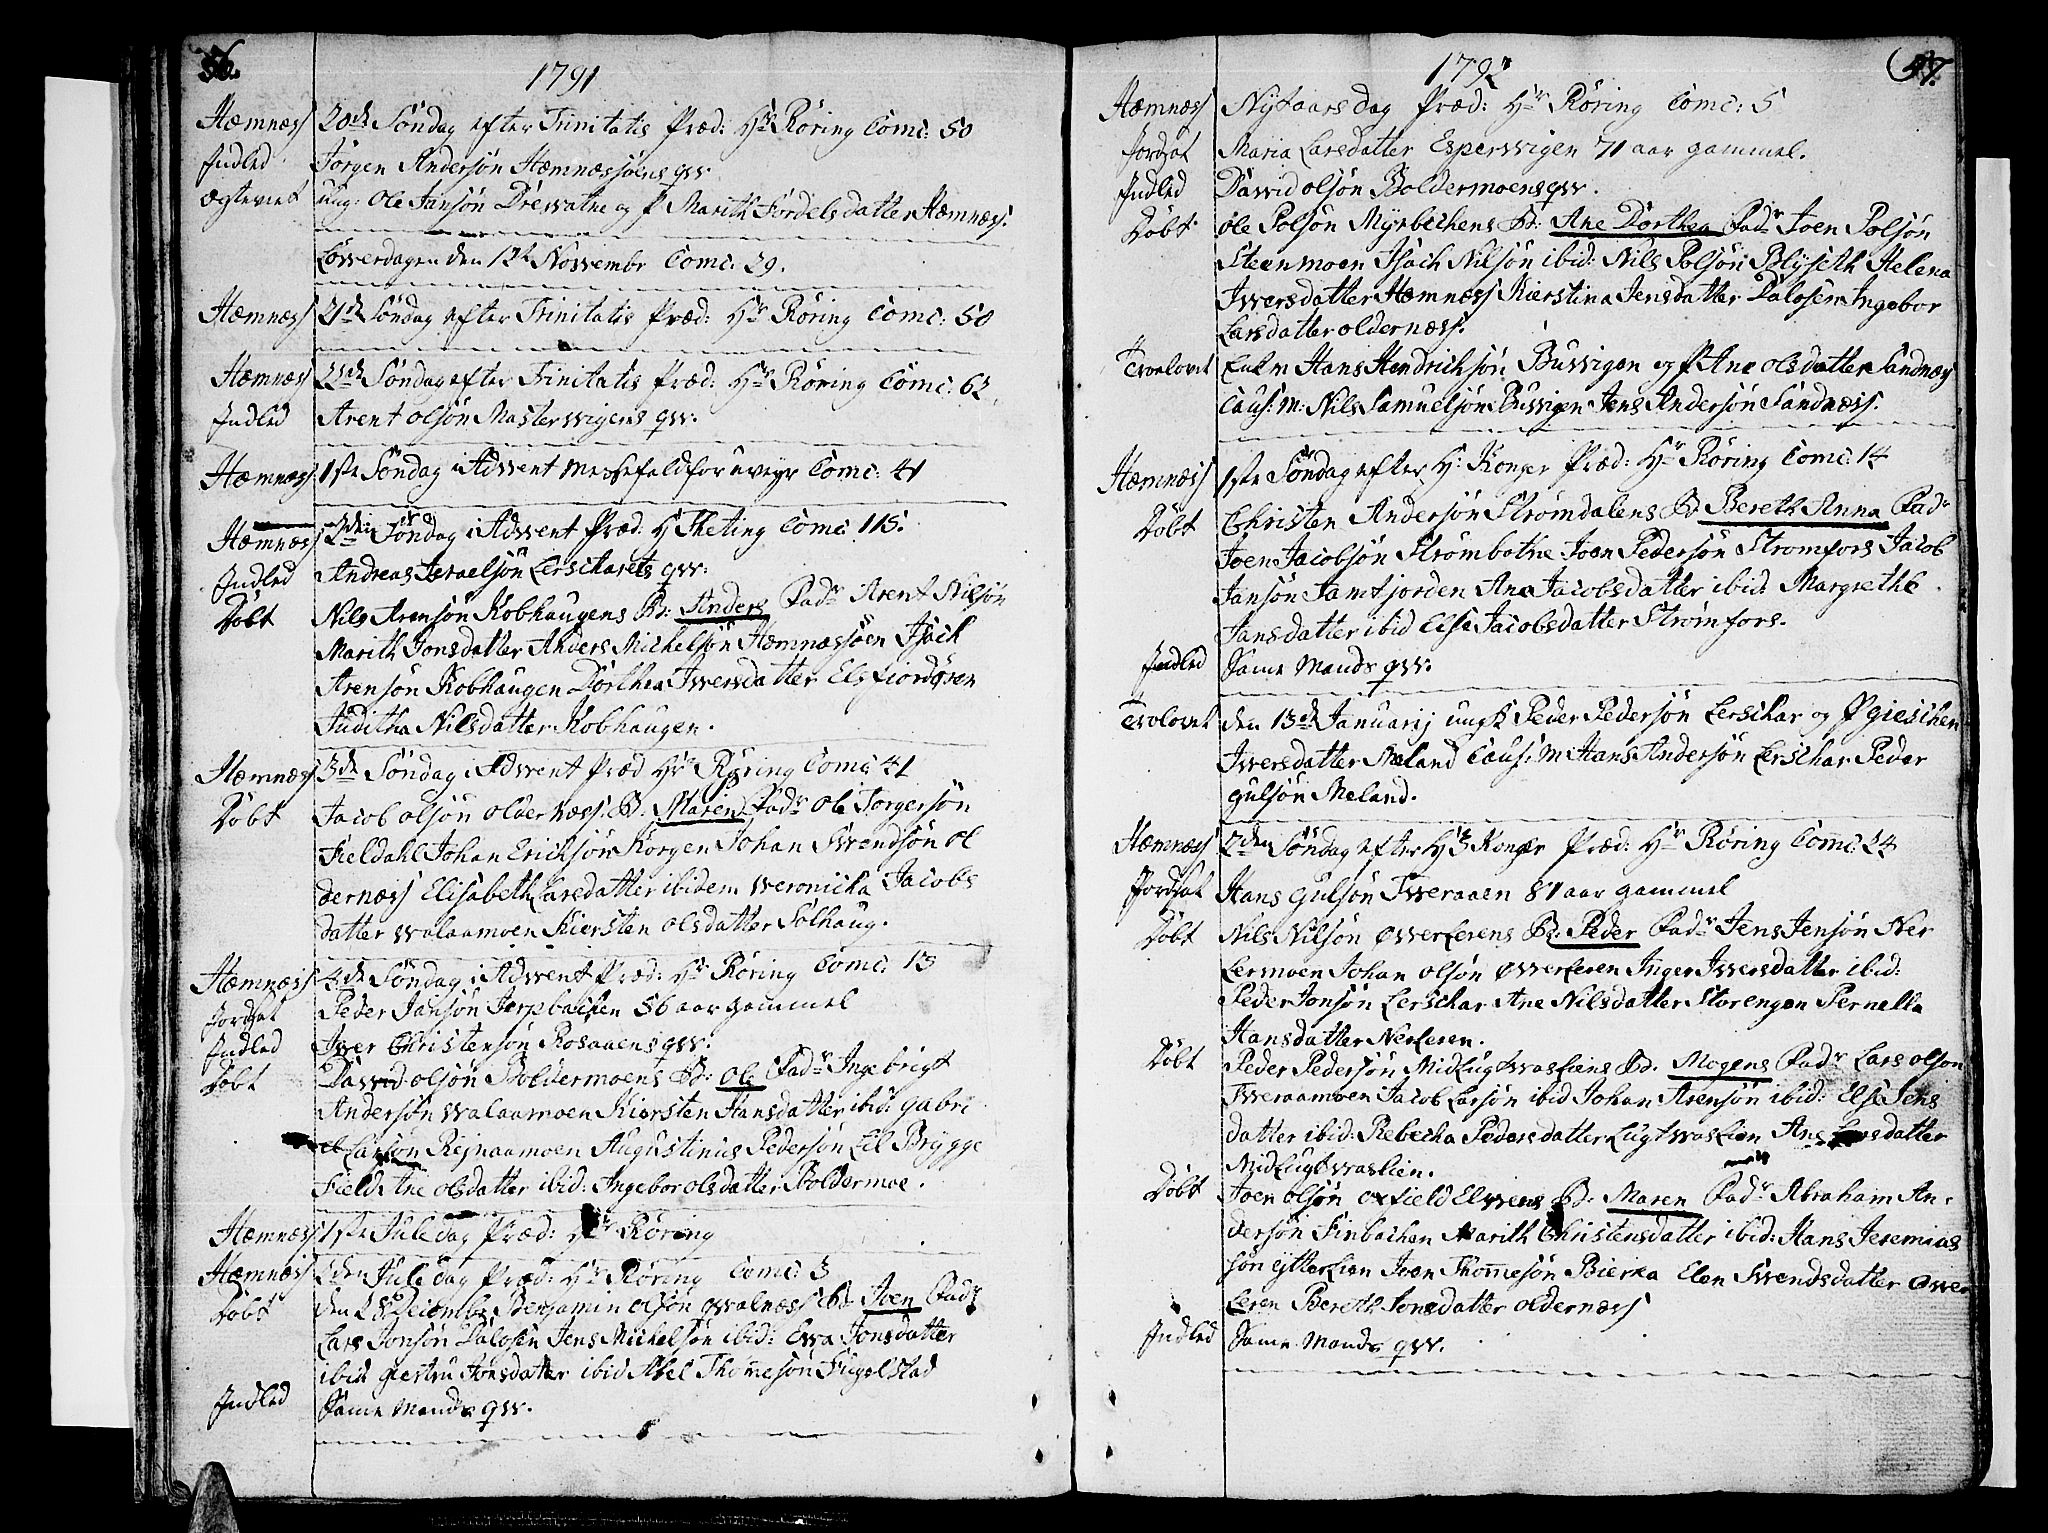 56.
1791
Hæmnæss 20de Söndag efter Trinitatis Præd: Hr Röring Comc: 50
Indled Jörgen Andersön Hæmnæssöens qw.
Ægteviet ung: Ole Jansön Drewatne og P Marith Fördelsdatter Hæmnæss.
Löwerdagen den 12te Nowembr Comc: 39.
Hæmnæss 21de Söndag efter Trinitatis Præd: Hr Röring Comc: 50
Hæmnæss 22de Söndag efter Trinitatis Præd: Hr Röring Comc: 62.
Indled Arent Olsön Masterwigens qw.
Hæmnæss 1ste Söndag i Adwent Messefald for uveyr Comc: 41
Hæmnæss 2den Söndag i Adwent Præd: Hr Theting Comc: 115.
Indled Andreas Israelsön Lerscharets qw:
Döbt Nils Arensön Kobhaugens B: Anders Fadr Arent Nilsön
Marith Jonsdatter Anders Michelsön Hæmnæssöen Isach
Arensön Kobhaugen Dorthea Iwersdatter Elsfiordören
Juditha Nilsdatter Kobhaugen.
Hæmnæss 3de Söndag i Adwent Præd Hr Röring Comc 41
Döbt Jacob Olsön Oldernæss. B. Maren Fadr Ole Torgersön
Fieldahl Johan Ericksön Korgen Johan Swendsön Ol
dernæss Elisabeth Larsdatter ibidem Weronicha Jacobs
datter Walaamoen Kiersten Olsdatter Solhaug.
Hæmnæss 4de Söndag i Adwent Præd: Hr Röring Comc: 13
Jordsat Peder Jansön Jerpbachen 56 aar gammel
Indled Iwer Christensön Rosaaens qw:
Döbt Dawid Olsön Boldermoens B: Ole Fadr Ingebrigt
Andersön Walaamoen Kiersten Hansdatter ibid: Gabri
el Larsön Reinaamoen Augustinus Pedersön Lil Brygge
Field Ane Olsdatter ibid: Ingebor Olsdatter Boldermoe.
Hæmnæss 1ste Juledag Præd: Hr Röring
Hæmnæss 2den Juledag Præd: Hr Röring Comc: 3
Döbt den 28 Decembr Benjamin Olsön Qwalnæss B. Joen Fadr
Lars Jonsön Dalosen Jens Michelsön ibid: Ewa Jonsdatter
ibid Giertru Jonsdatter ibid Abel Thomesön Fugelstad
Indled Samme Mands qw.
57.
1792
Hæmnæss Nytaarsdag Præd: Hr Röring Comc: 5
Jordsat Maria Larsdatter Esperwigen 71 aar gammel.
Indled Dawid Olsön Boldermoens qw.
Döbt Ole Polsön Myrbechens B: Ane Dorthea Fadr Joen Polsön
Steenmoen Isach Nilsön ibid: Nils Polsön Blyseth Helena
Iwersdatter Hæmnæss Kierstina Jensdatter Dalosen Ingebor
Larsdatter Oldernæss.
Troelovet Enkm Hans Hendrichsön Buswigen og P Ane Olsdatter Sandnæs
Caus: M: Nils Samuelsön Buswigen Jens Andersön Sandnæss.
Hæmnæss 1ste Söndag efter H: Konger Præd: Hr Röring Comc: 14
Döbt Christen Andersön Strömdalens B. Bereth Anna Fadr
Joen Jacobsön Strömbotne Joen Pedersön Strømfors Jacob
Jansön Jamtjorden Ane Jacobsdatter ibid: Margrethe
Jansdatter ibid Else Jacobsdatter Strømfors.
Indled Samme Mands qw.
Trolovet den 13de Januarij ungk Peder Pedersön Lerschar og P Gieschen
Iwersdatter Meland Caus: M Hans Andersön Lerschar Peder
Gulsön Meland.
Hæmnæss 2den Söndag efter H 3 Konger Præd: Hr Röring Comc: 24
Jordsat Hans Gulsön Tweraaen 81 aar gammel
Döbt Nils Nilsön Øwerlerens B: Peder Fadr Jens Jensön Ner
Lermoen Johan Olsön Øwerleren Inger Iwersdatter ibid:
Peder Jonsön Lerschar Ane Nilsdatter Storengen Pernella
Hansdatter Nerleren.
Döbt Peder Pedersön Midlugtwasliens B. Mogens Fadr Lars Olsön
Tweraamoen Jacob Larsön ibid Johan Arensön ibid: Else Jens
datter ibid: Rebecha Pedersdatter Lugtwaslien Ane Larsdatter
Midlugtwaslien.
Döbt Joen Olsön Oxfieldelwens B. Maren Fadr Abraham An-
dersön Finbachen Marith Christensdatter ibid: Hans Jeremias
sön Ytterlien Joen Thomesön Bierka Elen Swendsdatter Øwer
Leren Bereth Jonsdatter Oldernæss
Indled Samme Mands qw.